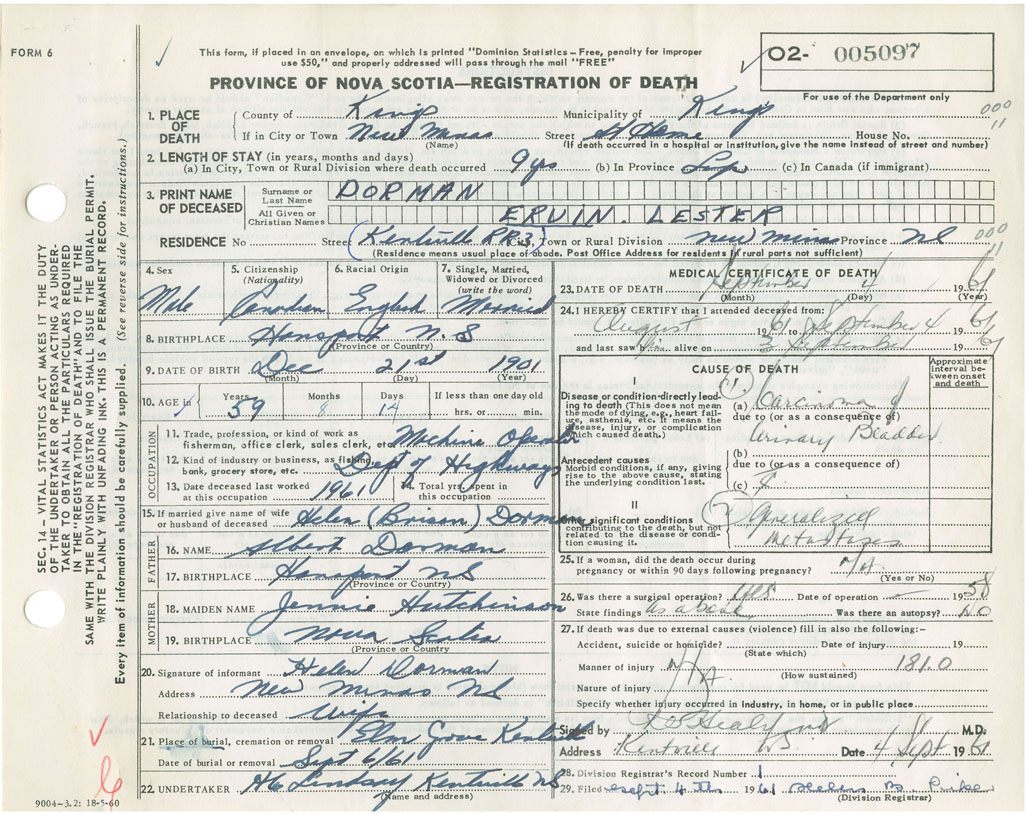 FORM 6
This form, if placed in an envelope, on which is printed "Dominion Statistics – Free, penalty for improper
use $50," and properly addressed will pass through the mail "FREE"
O2- 005097
For use of the Department only
PROVINCE OF NOVA SCOTIA—REGISTRATION OF DEATH
1. PLACE OF DEATH
County of Kings Municipality of Kings 000
If in City or Town New Minas Street At Home House No. 11
(Name) (If death occurred in a hospital or institution, give the name instead of street and number)
2. LENGTH OF STAY (in years, months and days)
(a) In City, Town or Rural Division where death occurred 9 yrs (b) In Province Life (c) In Canada (if immigrant)
3. PRINT NAME OF DECEASED
Surname or Last Name DORMAN
All Given or Christian Names ERVIN. LESTER
RESIDENCE No Street Kentville RR3 City, Town or Rural Division New Minas Province NS 000
11
(Residence means usual place of abode. Post Office Address for residents if rural parts not sufficient)
4. Sex Male
5. Citizenship (Nationality) Canadian
6. Racial Origin English
7. Single, Married, Widowed or Divorced (write the word) Married
8. BIRTHPLACE Hansport N.S
(Province or Country)
9. DATE OF BIRTH Dec 21st 1901
(Month) (Day) (Year)
10. AGE in Years 59 Months 8 Days 14 If less than one day old
hrs. or min.
OCCUPATION
11. Trade, profession, or kind of work as
fisherman, office clerk, sales clerk, etc. Machine Operator
12. Kind of industry or business, as fishing,
bank, grocery store, etc. Dept of Highways
13. Date deceased last worked
at this occupation 1961
14. Total yrs. spent in
this occupation
15. If married give name of wife
or husband of deceased Helen (Brison) Dorman
FATHER
16. NAME Albert Dorman
17. BIRTHPLACE Hansport NS
(Province or Country)
MOTHER
18. MAIDEN NAME Jennie Hutchinson
19. BIRTHPLACE Nova Scotia
(Province or Country)
20. Signature of informant Helen Dorman
Address New Minas NS
Relationship to deceased Wife
21. Place of burial, cremation or removal Elm Grove Kentville
Date of burial or removal Sept 6/61
22. UNDERTAKER H6 Lindsay Kentville NS
(Name and address)
MEDICAL CERTIFICATE OF DEATH
23. DATE OF DEATH September 4 1961
(Month) (Day) (Year)
24. I HEREBY CERTIFY that I attended deceased from:
August 1961 to September 4 1961
and last saw him alive on 3 September 1961
CAUSE OF DEATH
Approximate interval between onset and death
I
Disease or condition directly leading
to death (This does not mean
the mode of dying, e.g., heart failure,
asthenia, etc. It means the
disease, injury, or complication
which caused death.)
(a) Carcinoma of
due to (or as a consequence of)
Urinary Bladder
Antecedent causes
Morbid conditions, if any, giving
rise to the above cause, stating
the underlying condition last.
(b)
due to (or as a consequence of)
(c)
II
Other significant conditions
contributing to the death, but not
related to the disease or condition
causing it.
Generalized
Metastases
25. If a woman, did the death occur during
pregnancy or within 90 days following pregnancy? N/A
(Yes or No)
26. Was there a surgical operation? yes Date of operation 1958
State findings as above Was there an autopsy? No
27. If death was due to external causes (violence) fill in also the following:–
Accident, suicide or homicide? Date of injury 19
(State which)
Manner of injury N/A 181.0
(How sustained)
Nature of injury
Specify whether injury occurred in industry, in home, or in public place
Signed by Healy M.D.
Address Kentville NS Date 4 Sept 1961
28. Division Registrar's Record Number 1
29. Filed Sept. 4th 1961 Helen B.
(Division Registrar)
SEC. 14 – VITAL STATISTICS ACT MAKES IT THE DUTY
OF THE UNDERTAKER OR PERSON ACTING AS UNDER-
TAKER TO OBTAIN ALL THE PARTICULARS REQUIRED
IN THE "REGISTRATION OF DEATH" AND TO FILE THE
SAME WITH THE DIVISION REGISTRAR WHO SHALL ISSUE THE BURIAL PERMIT.
WRITE PLAINLY WITH UNFADING INK. THIS IS A PERMANENT RECORD.
Every item of information should be carefully supplied. (See reverse side for instructions.)
6
9004–3.2: 18-5-60